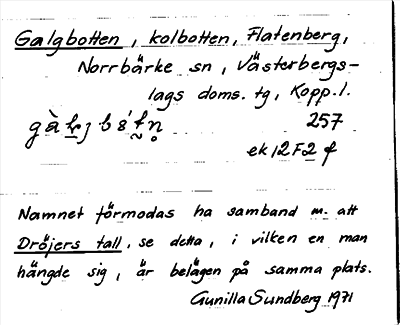 Galgbotten, kolbotten, Flatenberg,
Norrbärke sn, Västerbergs-
lags doms. tg, Kopp.l.
257
ek 12F2 f
Namnet förmodas ha samband m. att
Dröjers tall, se detta, i vilken en man
hängde sig, är belägen på samma plats.
Gunilla Sundberg 1971